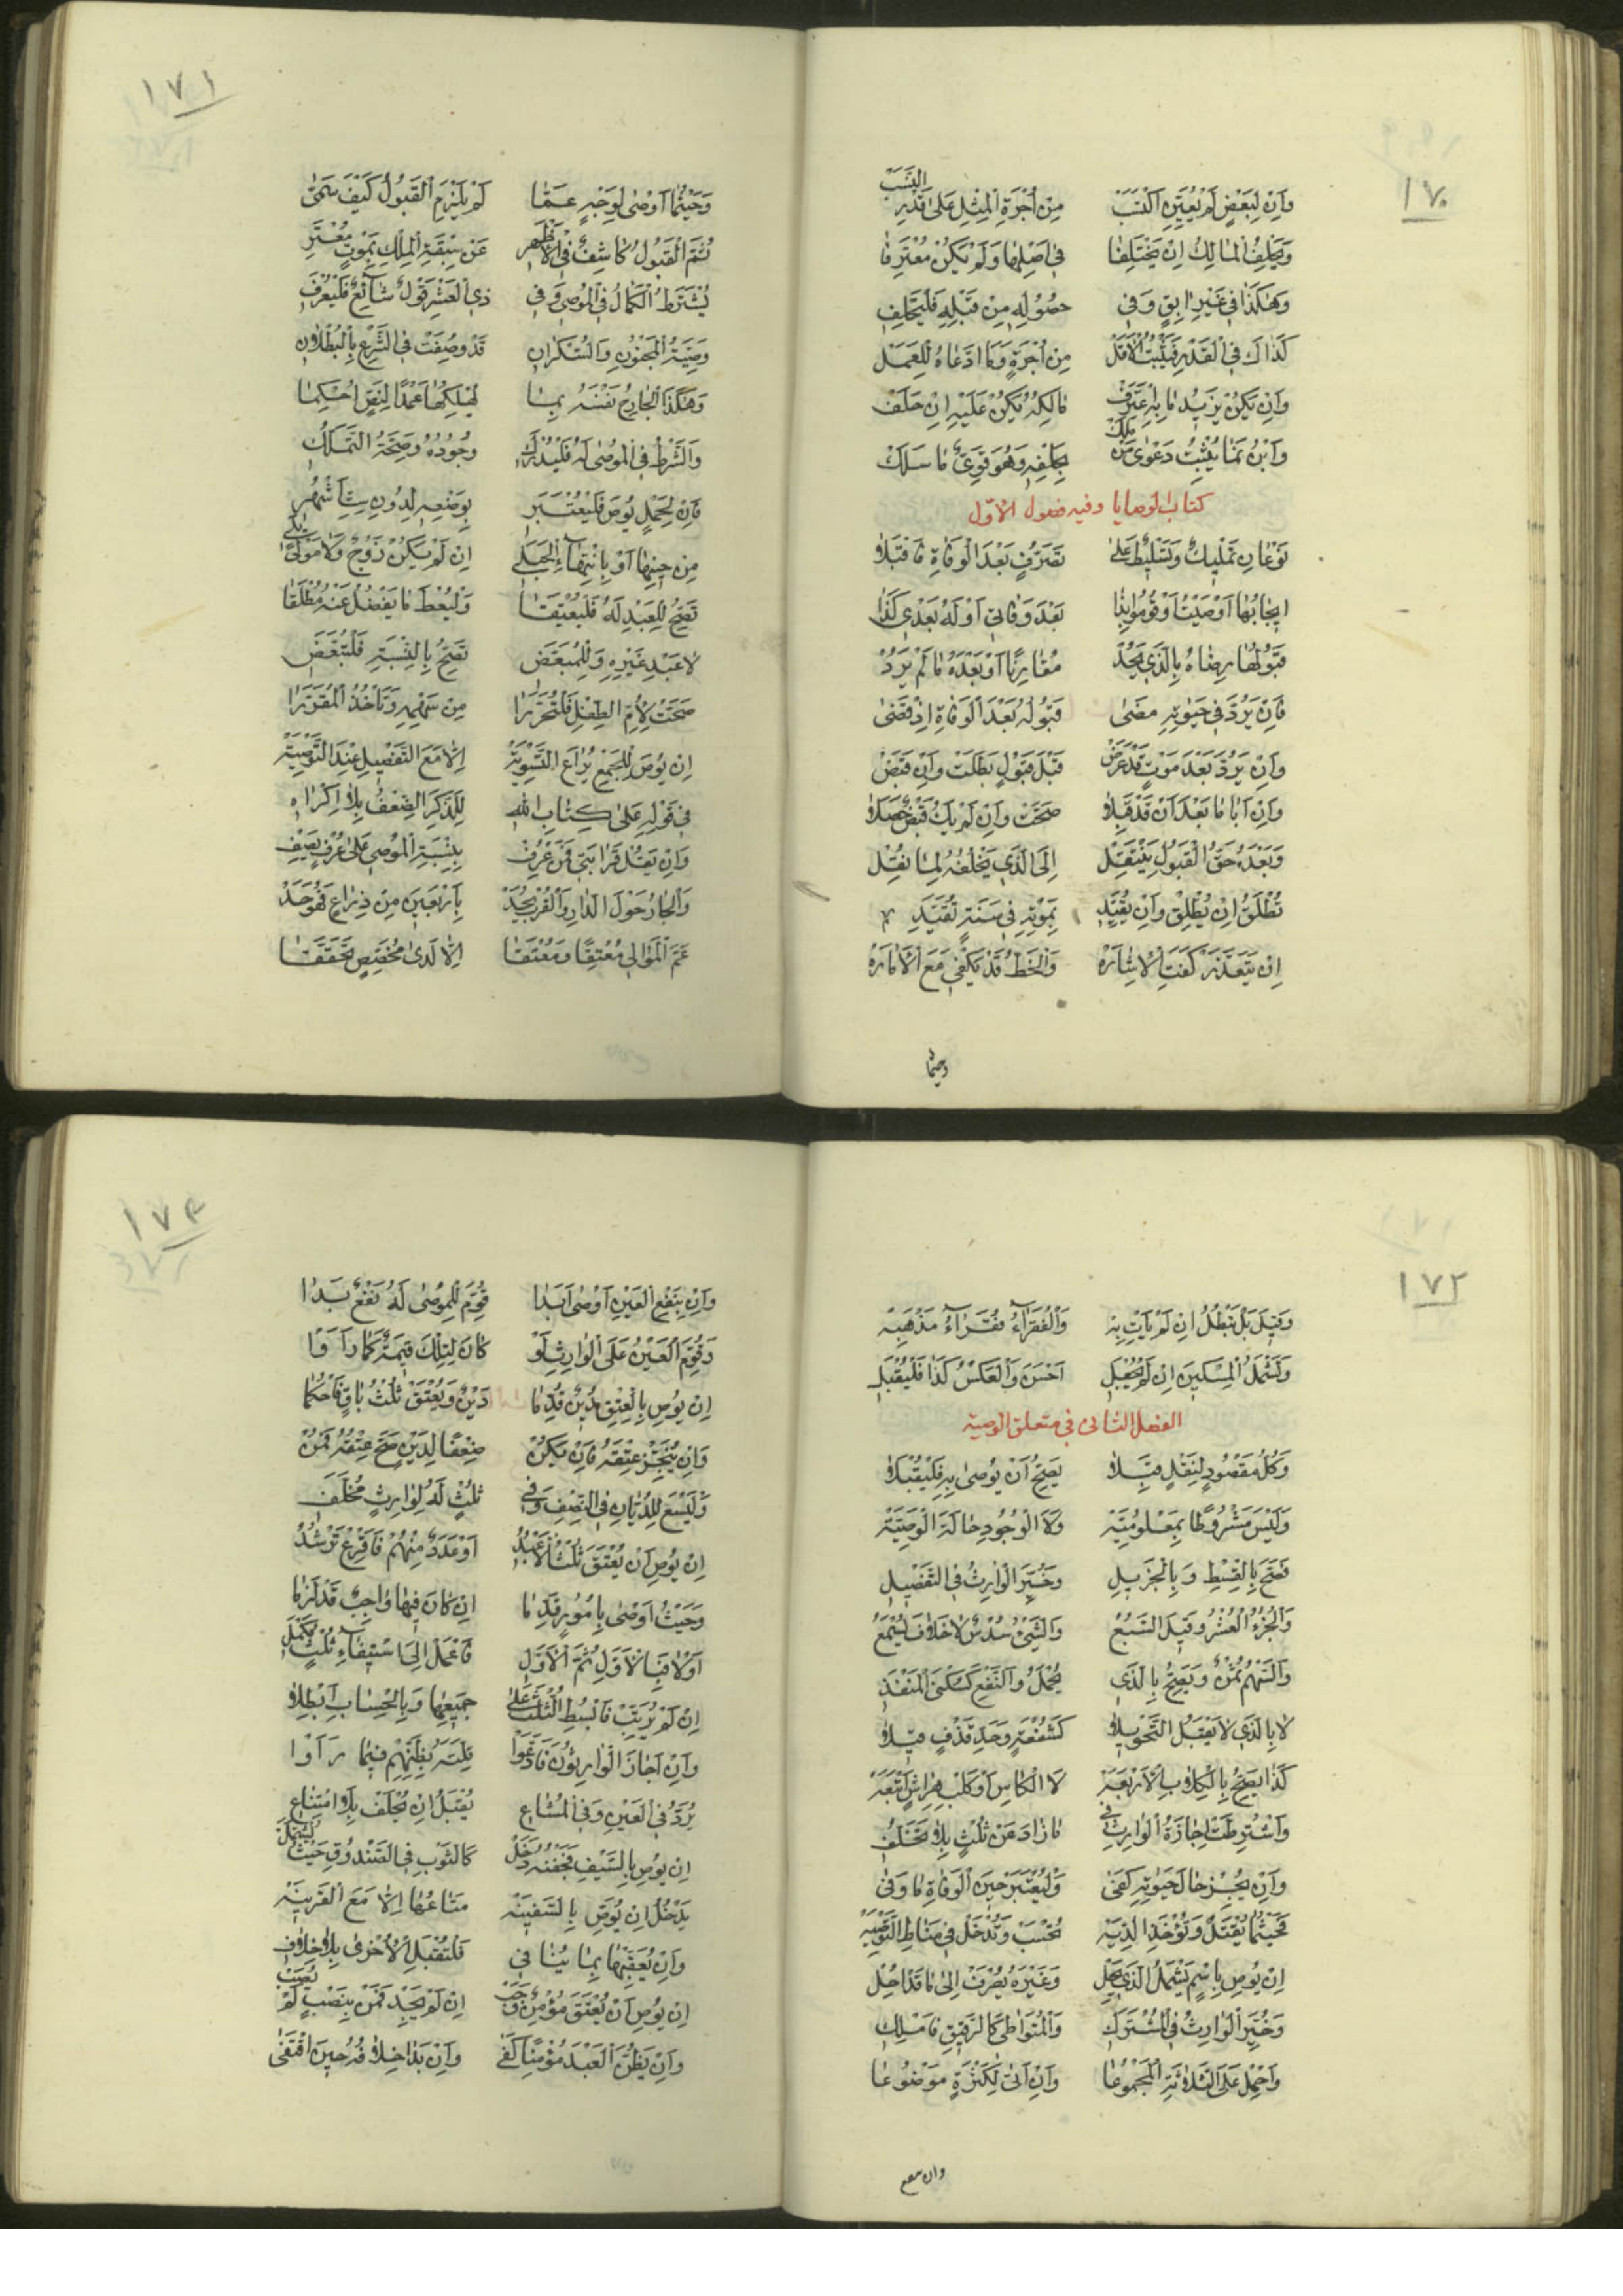 ١٧٠
وَاِنْ لِبَعْضٍ لَمْ يُعَيِّنِ اكْتَسَبْ مِنْ اُجْرَةِ الْمِثْلِ عَلَى قَدْرِ النَّسَبْ
وَيَحْلِفُ الْمَالِكُ اِنْ يَخْتَلِفَا فِي اَصْلِهَا وَلَمْ يَكُنْ مُعْتَرِفَا
وَهٰكَذَا فِي غَيْرِ ابِقٍ وَفِي حُصُولِهِ مِنْ قَبْلِهِ فَلْيَحْلِفِ
كَذَاكَ فِي الْقَدْرِ فَيَثْبُتُ الْاَقَلّْ مِنْ اُجْرَةٍ وَمَا ادَّعَاهُ لِلْعَمَلْ
وَاِنْ يَكُنْ يَزِيدُ مَا بِهِ اعْتَرَفْ مَالِكُهُ يَكُنْ عَلَيْهِ اِنْ حَلَفْ
وَابْنُ نَمَا يُثْبِتُ دَعْوَى مَنْ مَلَكْ بِحَلْفِهِ وَهُوَ قَوِيٌّ مَا سَلَكْ
كتاب الوصايا وفيه فصول الاول
نَوْعَانِ تَمْلِيكٌ وَتَسْلِيطٌ عَلَى تَصَرُّفٍ بَعْدَ الْوَفَاةِ فَاقْبَلَا
اِيجَابُهَا اَوْصَيْتُ اَوْ قُومُوا بِذَا بَعْدَ وَفَاتِي اَوْ لَهُ بَعْدِي كَذَا
قَبُولُهَا رِضَاهُ بِالَّذِي يَجُدْ مُقَارِنًا اَوْ بَعْدَهُ مَا لَمْ يَرُدْ
فَاِنْ يَرُدَّ فِي حَيٰوتِهِ مَضَى قَبُولُهُ بَعْدَ الْوَفَاةِ اِذْ قَضَى
وَاِنْ يَرُدَّ بَعْدَ مَوْتٍ قَدْ عَرَضْ قَبْلَ قَبُولٍ بَطَلَتْ وَاِنْ قَبَضْ
وَاِنْ اَبَا مَا بَعْدَ اَنْ قَدْ قَبِلَا صَحَّتْ وَاِنْ لَمْ يَكُ قَبْضٌ حَصَلَا
وَبَعْدَهُ حَقُّ الْقَبُولِ يَنْتَقِلْ اِلَى الَّذِي يَخْلُفُهُ لِمَا نُقِلْ
تُطْلَقُ اِنْ يُطْلِقْ وَاِنْ يُقَيِّدِ بِمَوْتِهِ فِي سَنَةٍ تُقَيَّدِ
اِنْ يَتَعَذَّرْ كَفَتِ الْاِشَارَهْ وَالْخَطُّ قَدْ يَكْفِي مَعَ الْاَمَارَهْ
وحيثما
١٧١
وَحَيْثُمَا اَوْصَى لِوَجْهٍ عَمَّا لَمْ يَلْزَمِ الْقَبُولُ كَيْفَ سَمَّى
ثُمَّ الْقَبُولُ كَاشِفٌ فِي الْاَظْهَرِ عَنْ سِبْقَةِ الْمِلْكِ بِمَوْتٍ مُعْتَرِ
يُشْتَرَطُ الْكَمَالُ فِي الْمُوصِي وَفِي ذِي الْعَشْرِ قَوْلٌ شَائِعٌ فَلْيُعْرَفِ
وَصِيَّةُ الْمَجْنُونِ وَالسَّكْرَانِ قَدْ وُصِفَتْ فِي الشَّرْعِ بِالْبُطْلَانِ
وَهٰكَذَا الْجَارِحُ نَفْسَهُ بِمَا يُهْلِكُهَا عَمْدًا لِنَصٍّ اُحْكِمَا
وَالشَّرْطُ فِي الْمُوصَى لَهُ فَلْيُدْرَكِ وُجُودُهُ وَصِحَّةُ التَّمَلُّكِ
فَاِنْ لِحَمْلٍ يُوصَ فَلْيُعْتَبَرِ بِوَضْعِهِ لِدُونِ سِتِّ اَشْهُرِ
مِنْ حِينِهَا اَوْ بِانْتِهَاءِ الْحَبَلِ اِنْ لَمْ يَكُنْ زَوْجٌ وَلَا مَوْلًى يَلِي
تَصِحُّ لِلْعَبْدِ لَهُ فَلْيُعْتَقَا وَلْيُعْطَ مَا يَفْضُلُ عَنْهُ مُطْلَقَا
لَا عَبْدِ غَيْرِهِ وَلِلْمُبَعَّضِ تَصِحُّ بِالنِّسْبَةِ فَلْتُبَعَّضِ
صَحَّتْ لِاُمِّ الطِّفْلِ فَلْتُحَرَّرَا مِنْ سَهْمِهِ وَتَاْخُذُ الْمُقَرَّرَا
اِنْ يُوصِ لِلْجَمْعِ يُرَاعَ التَّسْوِيَهْ اِلَّا مَعَ التَّفْضِيلِ عِنْدَ التَّوْصِيَهْ
فِي قَوْلِهِ عَلَى كِتَابِ اللّٰهِ لِلذَّكَرِ الضِّعْفُ بِلَا اِكْرَاهِ
وَاِنْ يَقُلْ قَرَابَتِي فَمَنْ عُرِفْ بِنِسْبَةِ الْمُوصِي عَلَى عُرْفٍ يَصِفْ
وَالْجَارُ حَوْلَ الدَّارِ وَالْقُرْبُ يُحَدّْ بِاَرْبَعِينَ مِنْ ذِرَاعٍ فَهْوَ حَدّْ
عَمَّ الْمَوَالِي مُعْتِقًا وَمُعْتَقَا اِلَّا لَدَى مُخَصِّصٍ تَحَقَّقَا
١٧٢
وَقِيلَ بَلْ تَبْطُلُ اِنْ لَمْ يَاْتِ بِهْ وَالْفُقَرَاءُ فُقَرَاءُ مَذْهَبِهْ
وَتَشْمَلُ الْمِسْكِينَ اِنْ لَمْ يُجْعَلِ اَحْسَنَ وَالْعَكْسُ كَذَا فَلْيُقْبَلِ
الفصل الثانى فى متعلق الوصية
وَكُلُّ مَقْصُودٍ لِنَقْلٍ قَبِلَا يَصِحُّ اَنْ يُوصَى بِهِ فَلْيُقْبَلَا
وَلَيْسَ مَشْرُوطًا بِمَعْلُومِيَّهْ وَلَا الْوُجُودِ حَالَةَ الْوَصِيَّهْ
فَصَحَّ بِالْقِسْطِ وَبِالْجَزِيلِ وَخُيِّرَ الْوَارِثُ فِي التَّفْصِيلِ
وَالْجُزْءُ الْعُشْرُ وَقِيلَ السُّبْعُ وَالشَّيْءُ سُدْسٌ لَا خِلَافَ يُسْمَعُ
وَالسَّهْمُ ثُمْنٌ وَيَصِحُّ بِالَّذِي يُحْمَلُ وَالنَّفْعِ كَسُكْنَى الْمَنْفَذِ
لَا بِالَّذِي لَا يَقْبَلُ التَّحْوِيلَا كَشُفْعَةٍ وَحَدِّ قَذْفٍ قِيلَا
كَذَا يَصِحُّ بِالْكِلَابِ الْاَرْبَعَهْ لَا الْكَاسِ اَوْ كَلْبِ هِرَاشٍ اتَّبَعَهْ
وَاشْتُرِطَتْ اِجَازَةُ الْوَارِثِ فِي مَا زَادَ عَنْ ثُلْثٍ بِلَا تَخَلُّفِ
وَاِنْ يُجِزْ حَالَ حَيٰوتِهِ كَفَى وَلْيُعْتَبَرْ حِينَ الْوَفَاةِ مَا وَفَى
فَحَيْثُمَا يُقْتَلْ وَتُؤْخَذِ الدِّيَهْ تُحْسَبْ وَتَدْخُلْ فِي مَنَاطِ التَّوْصِيَهْ
اِنْ يُوصِ بِاسْمٍ يَشْمَلُ الَّذِي يَحِلّْ وَغَيْرَهُ يُصْرَفْ اِلَى مَا قَدْ اُحِلّْ
وَخُيِّرَ الْوَارِثُ فِي الْمُشْتَرَكِ وَالْمُتَوَاطِي كَالرَّقِيقِ فَامْلِكِ
وَاحْمِلْ عَلَى الثَّلَاثَةِ الْمَجْمُوعَا وَاِنْ اَتَى لِكَثْرَةٍ مَوْضُوعَا
وان بنفع
١٧٣
وَاِنْ بِنَفْعِ الْعَيْنِ اَوْصَى اَبَدَا قُوِّمَ لِلْمُوصَى لَهُ نَفْعٌ بَدَا
وَقُوِّمَ الْعَيْنُ عَلَى الْوَارِثِ لَوْ كَانَ لِتِلْكَ قِيمَةٌ كَمَا رَاَوْا
اِنْ يُوصِ بِالْعِتْقِ مَدِينٌ قُدِّمَا دَيْنٌ وَيُعْتَقْ ثُلْثُ بَاقٍ فَاحْكُمَا
وَاِنْ يُنَجِّزْ عِتْقَهُ فَاِنْ يَكُنْ ضِعْفًا لِدَيْنٍ صَحَّ عِتْقُهُ فَمَنْ
وَلْيَسْعَ لِلدُّيَّانِ فِي النِّصْفِ وَفِي ثُلْثٍ لَهُ لِوَارِثٍ مُخَلَّفِ
اِنْ يُوصِ اَنْ يُعْتَقَ ثُلْثُ الْاَعْبُدِ اَوْ عَدَدٌ مِنْهُمْ فَاَقْرِعْ تَرْشُدِ
وَحَيْثُ اَوْصَى بِاُمُورٍ قَدِّمَا اِنْ كَانَ فِيهَا وَاجِبٌ قَدْ لَزِمَا
اَوْ لَا فَبِالْاَوَّلِ ثُمَّ الْاَوَّلِ فَاعْمَلْ اِلَى اسْتِيفَاءِ ثُلْثٍ مُكْمَلِ
اِنْ لَمْ يُرَتِّبْ فَابْسُطِ الثُّلْثَ عَلَى جَمِيعِهَا وَبِالْحِسَابِ اَبْطِلَا
وَاِنْ اَجَازَ الْوَارِثُونَ فَادَّعَوْا قِلَّتَهُ بِظَنِّهِمْ فِيمَا رَاَوْا
يُرَدُّ فِي الْعَيْنِ وَفِي الْمُشَاعِ يُقْبَلُ اِنْ يُحْلَفْ بِلَا امْتِنَاعِ
اِنْ يُوصِ بِالسَّيْفِ فَجَفْنُهُ دَخَلْ كَالثَّوْبِ فِي الصَّنْدُوقِ حَيْثُ يَشْتَمِلْ
يَدْخُلُ اِنْ يُوصِ بِالسَّفِينَهْ مَتَاعُهَا اِلَّا مَعَ الْقَرِينَهْ
وَاِنْ يُعَقِّبْهَا بِمَا يُنَافِي فَلْتُقْبَلِ الْاُخْرَى بِلَا خِلَافِ
اِنْ يُوصِ اَنْ يُعْتَقَ مُؤْمِنٌ وَجَبْ اِنْ لَمْ يَجِدْ فَمَنْ بِنَصْبٍ لَمْ يُعَبْ
وَاِنْ يَظُنَّ الْعَبْدَ مُؤْمِنًا كَفَى وَاِنْ بَدَا خِلَافُهُ حِينَ اقْتَفَى